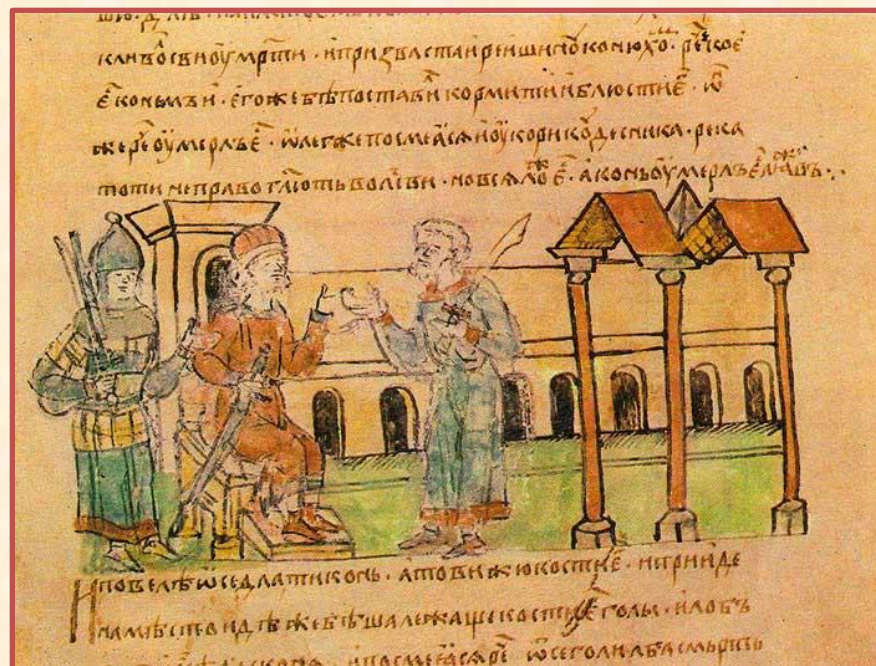 оумрⷭ҇ти · ипризвастаирѣишинꙋконюхоⷨ · реⷱ҇кое
е҃ коньмъи · егожебѣпоставиⷧ кормитииблюстие҃ · ѡⷩ
жереⷱ҇оумерлъе҃ · ѡлегжепосмеꙗсѧиоукорикꙋдесника · река
тотинеправоглю҃тьволъсви · новсѧлоⷤе҃ · аконьоумерлъе҃
Иповелѣѡседлатиконь · атовижюкостие҃ · иприиде
намѣстоидѣжебѣшалежащекостие҃голы · илобъ
ипосмеꙗсѧреⷱ҇ ѿсеголилбасмьрть